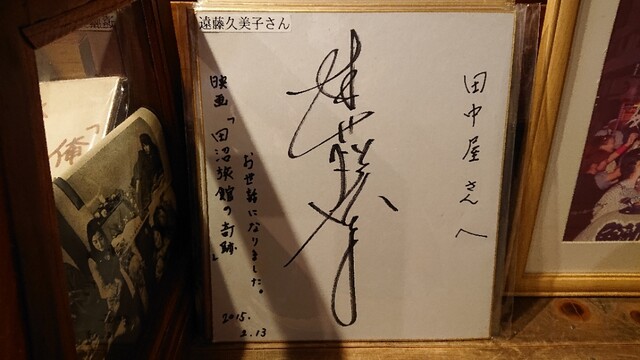 遠藤久美子さん
田中屋さんへ
映画「田沼旅館の奇跡」
お世話になりました。
2015.
2.13
俺」